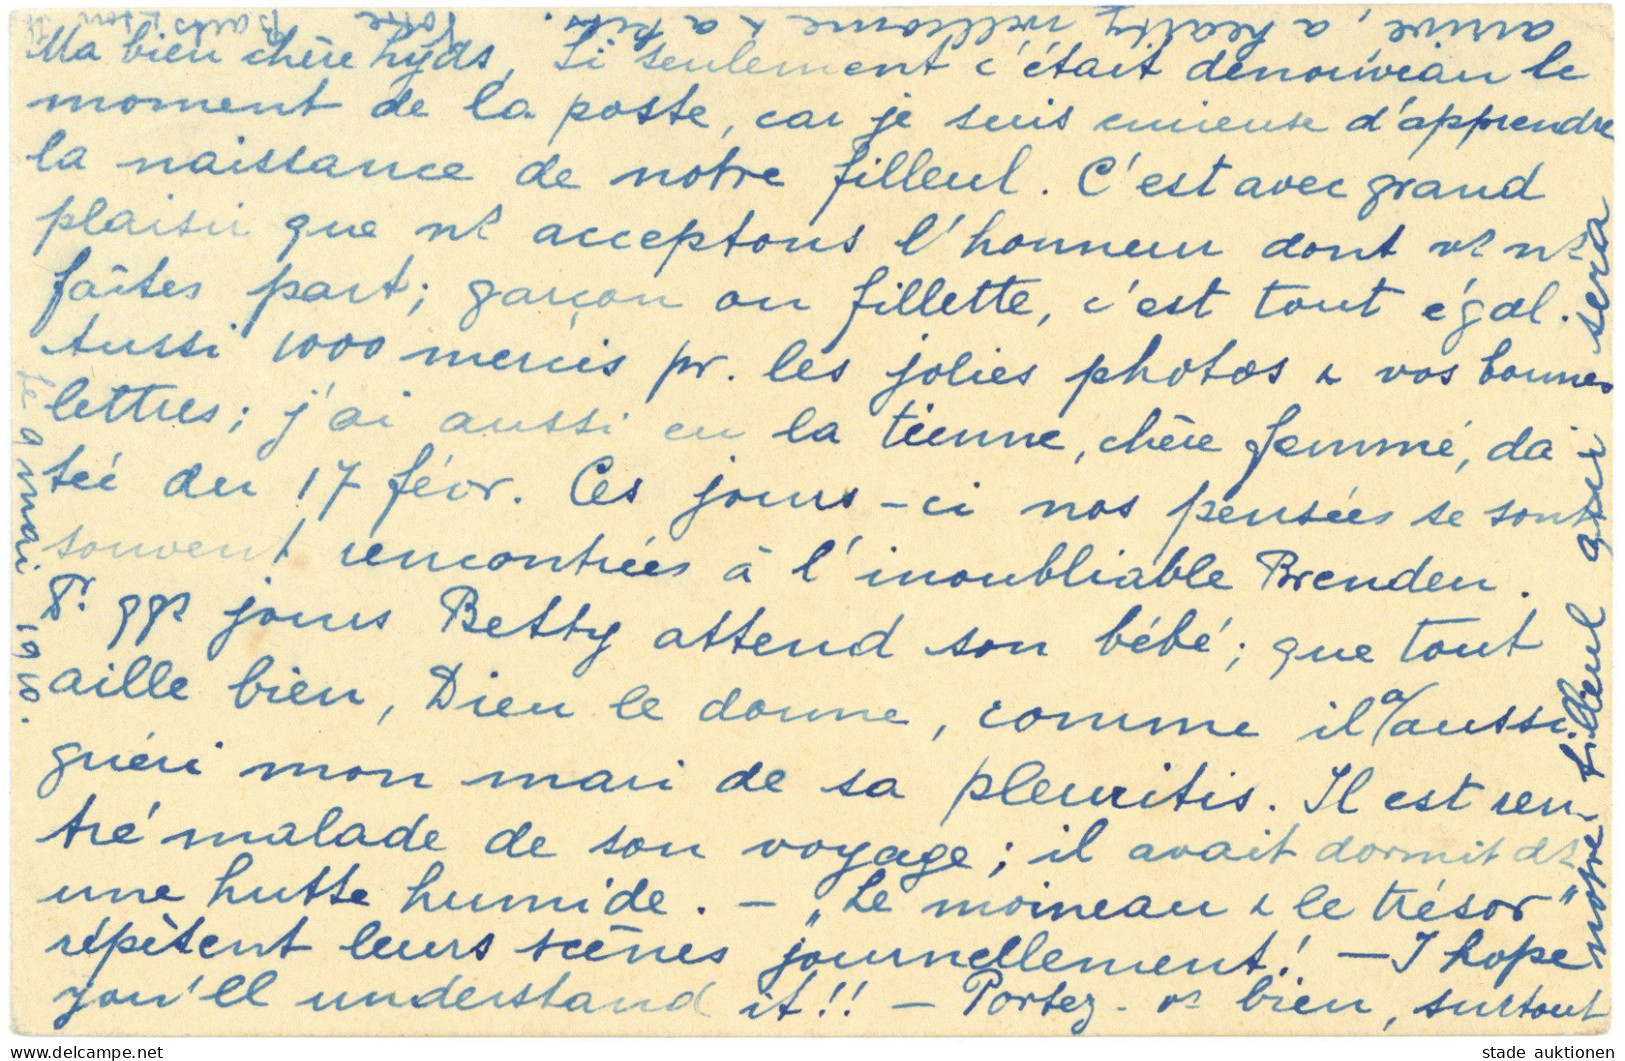 Ma bien chère Hyds, Si seulement c'était denouveau le
moment de la poste, car je suis curieuse d'apprendre
la naissance de notre filleul. C'est avec grand
plaisir que ns acceptons l'honneur dont vs ns
faîtes part; garçon ou fillette, c'est tout égal.
Aussi 1000 mercis pr. les jolies photos & vos bonnes
lettres; j'ai aussi eu la tienne, chère femme, da-
tée du 17 févr. Ces jours-ci nos pensées se sont
souvent rencontrées à l'inoubliable Brenden.
Ds. qqs jours Betty attend son bébé; que tout
aille bien, Dieu le donne, comme il a aussi
guéri mon mari de sa pleuritis. Il est ren-
tré malade de son voyage; il avait dormit ds
une hutte humide. — „Le moineau & le trésor"
répètent leurs scènes journellement! — I hope
you'll understand it!! — Portez-vs bien, surtout
notre filleul qui sera
arrivé, a hearty wellcome & a kiss.
Votre
le 9 mai 1910.
stade auktionen